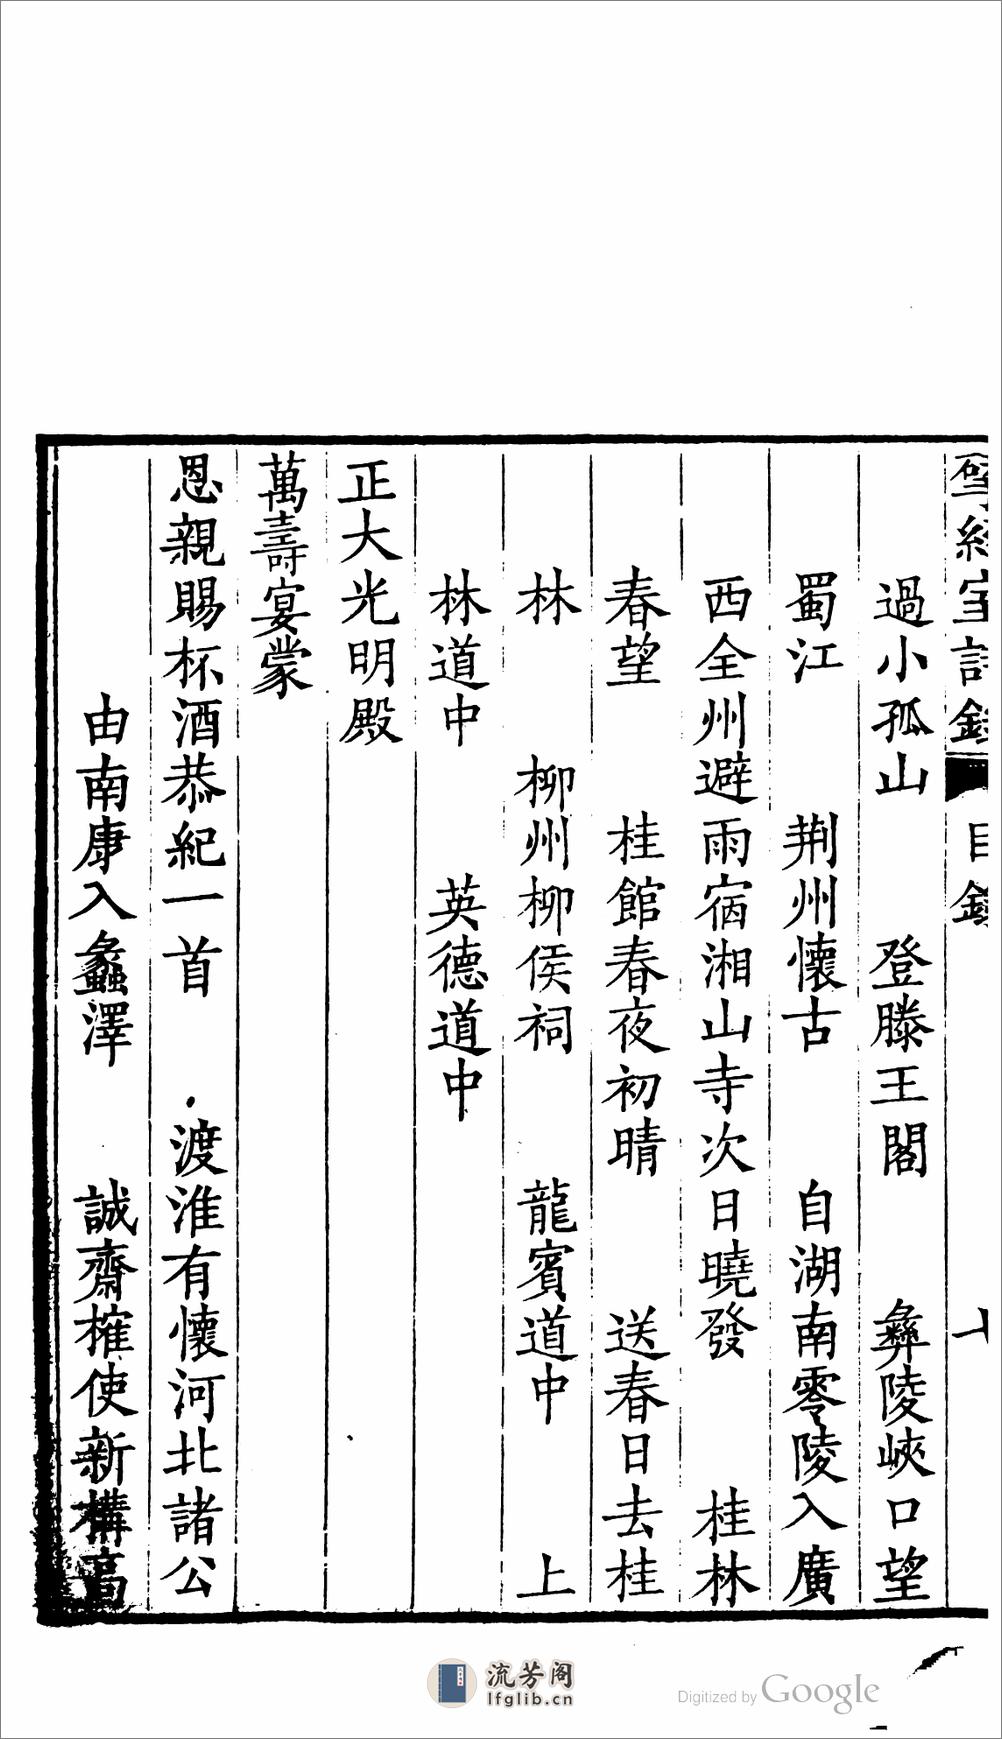 揅經室詩錄 目錄 十
過小孤山 登滕王閣 彝陵峽口望
蜀江 荆州懷古 自湖南零陵入廣
西全州避雨宿湘山寺次日曉發 桂林
春望 桂館春夜初晴 送春日去桂
林 柳州柳侯祠 龍賓道中 上
林道中 英德道中
正大光明殿
萬壽宴蒙
恩親賜杯酒恭紀一首 渡淮有懷河北諸公
由南康入蠡澤 誠齋榷使新構高
流芳阁
lfglib.cn
Digitized by Google